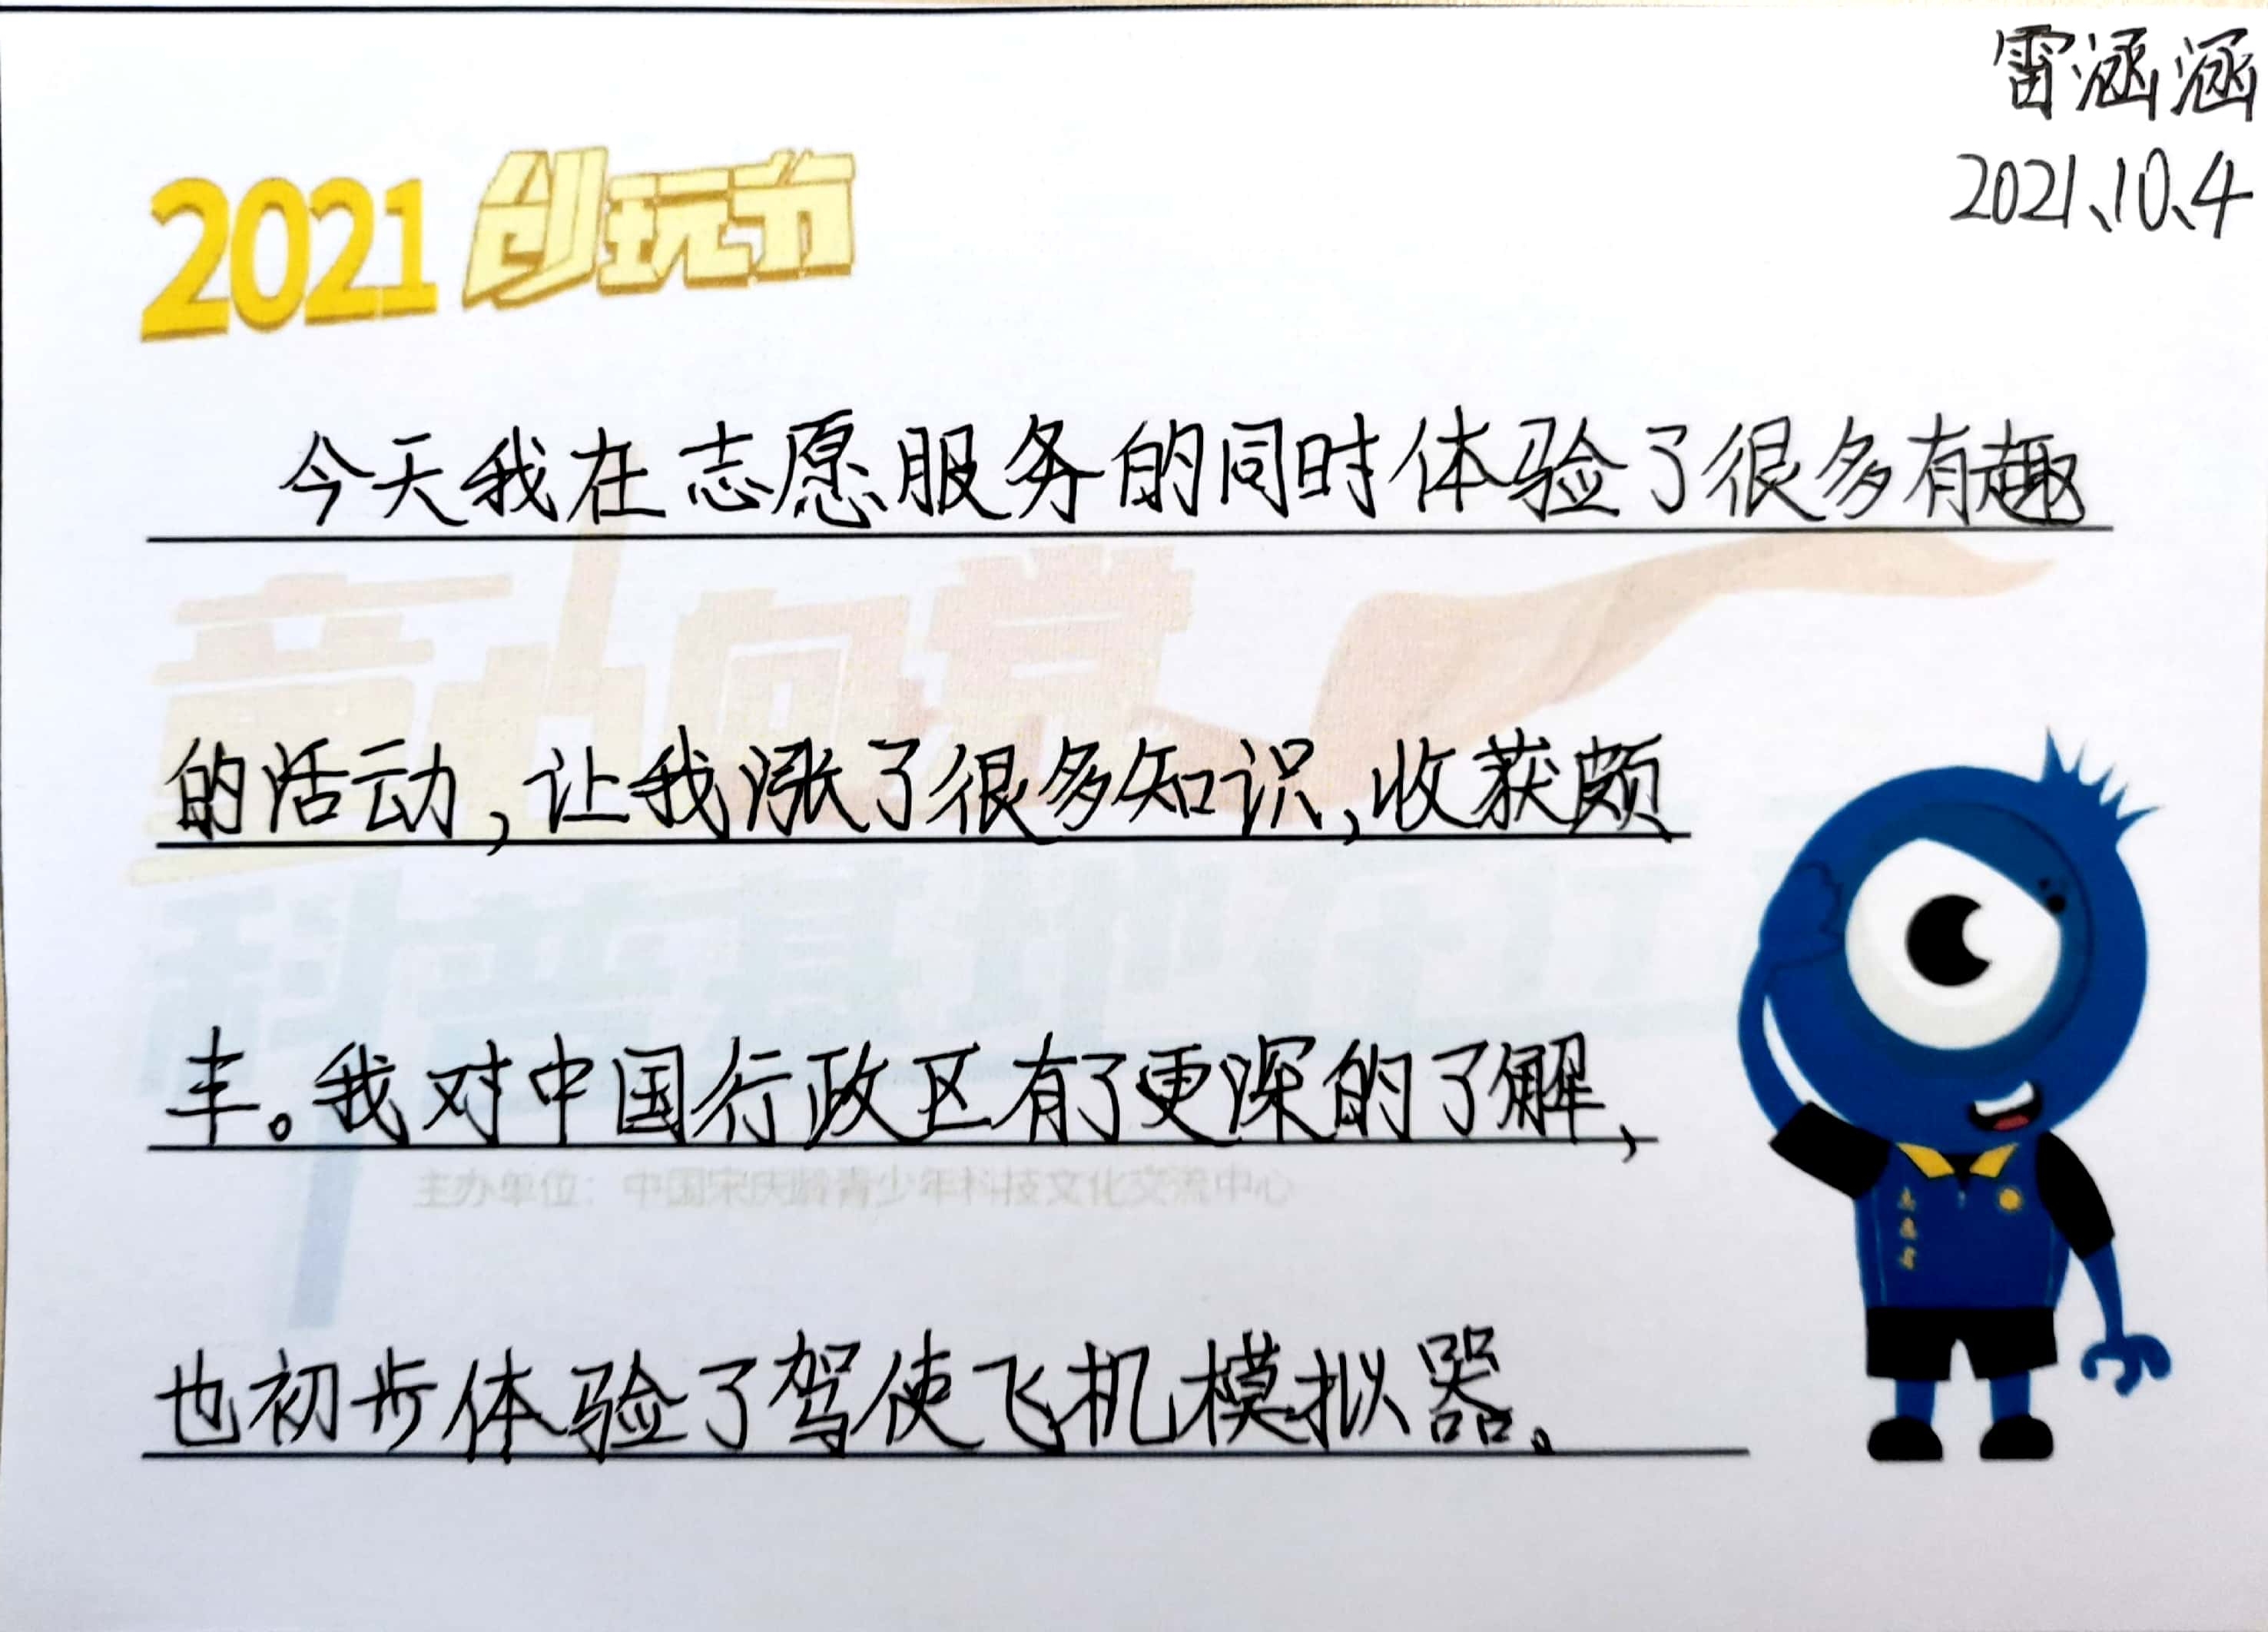 雷涵涵
2021、10、4
2021创玩节
今天我在志愿服务的同时体验了很多有趣
的活动,让我涨了很多知识,收获颇
童心向党
科普基地在江
丰。我对中国行政区有了更深的了解,
主办单位：中国宋庆龄青少年科技文化交流中心
志愿者
也初步体验了驾使飞机模拟器。